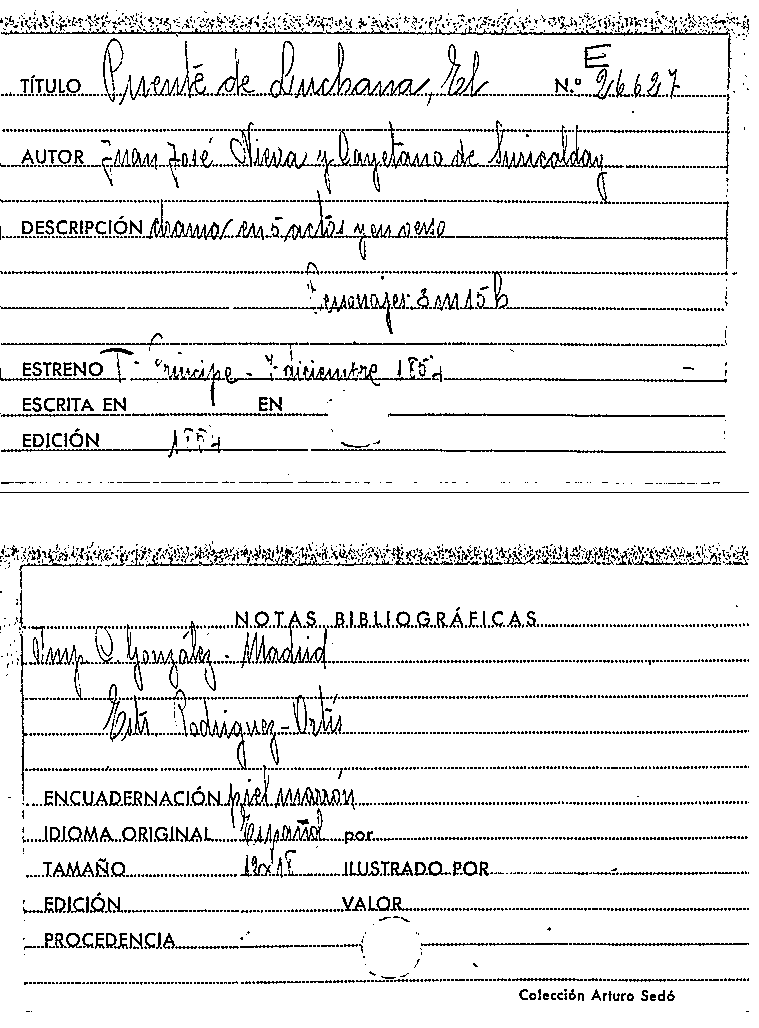 TÍTULO Puente de Luchana, El N.º E 26627
AUTOR Juan José Nieva y Cayetano de Suricalday
DESCRIPCIÓN drama en 5 actos y en verso
Personajes 3 m 15 h
ESTRENO T. Príncipe - 7 diciembre 1854 -
ESCRITA EN EN
EDICIÓN 1854
NOTAS BIBLIOGRÁFICAS
Imp C. González - Madrid
Estr. Rodriguez - Ortís
ENCUADERNACIÓN piel marrón
IDIOMA ORIGINAL Español por
TAMAÑO 12x18 ILUSTRADO POR
EDICIÓN VALOR
PROCEDENCIA
Colección Arturo Sedó